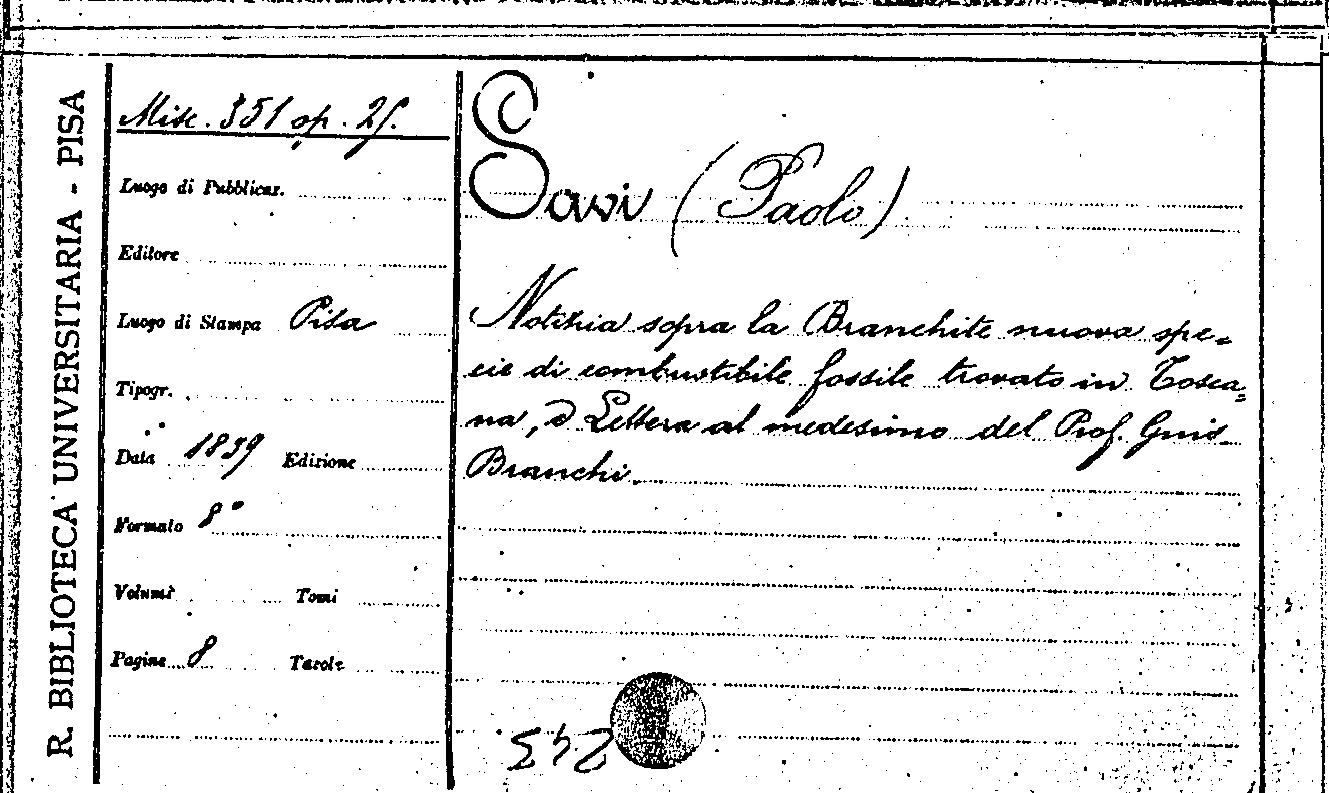 R. BIBLIOTECA UNIVERSITARIA - PISA
Misc. 351 op. 25.
Luogo di Pubblicaz.
Editore
Luogo di Stampa Pisa
Tipogr.
Data 1839 Edizione
Formato 8°
Volumi Tomi
Pagine 8 Tavole
Savi (Paolo)
Notizia sopra la Branchite nuova spe=
cie di combustibile fossile trovato in Tosca=
na, e Lettera al medesimo del Prof. Gius.
Branchi.